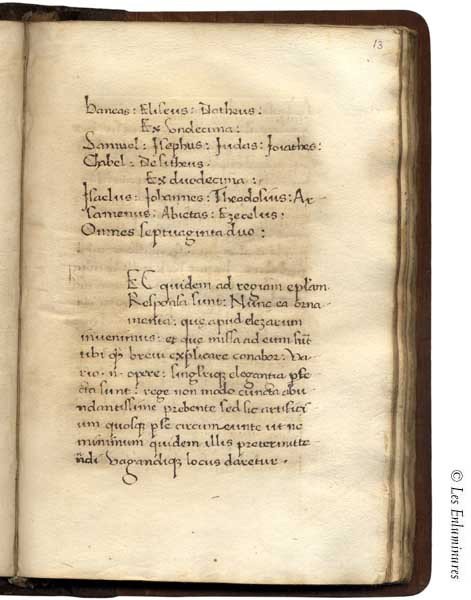 13
baneas: Eliseus: Datheus:
Ex undecima:
Samuol: Isephus: Judas: Jonathes:
Chabel: Desitheus.
Ex duodecima:
Isaelus: Iohannes: Theodosius: Ar
samenus: Abietas: Ezecelus:
Omnes septuaginta duo:
EC quidem ad regiam eplam
Responsa sunt: Nunc ea orna
menta: que apud elezarum
invenimus: et que missa ad eum sut
tibi brevi explicare conabor: Va
rio .n. opere: elegantia
cta sunt: rege non modo cuncta abu
ndantissime prebente sed sic artifici
um quosq pse circumeunte ut ne
minimum quidem illis pretermitte
ndi vagandiq locus daretur.
© Les Enluminures